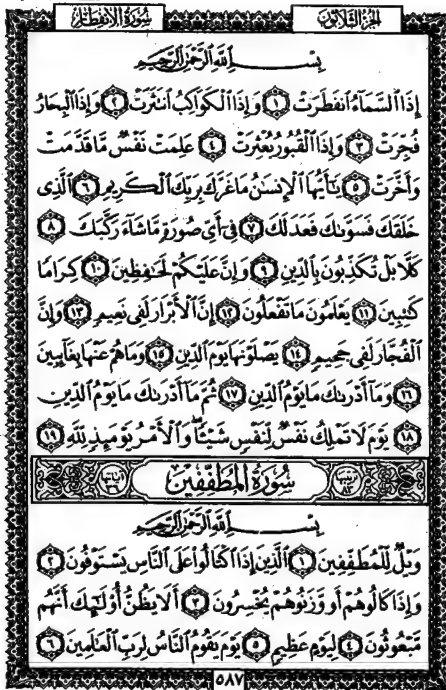 سُورَةُ الانفِطَارِ الجُزْءُ الثَّلَاثُونَ
بِسْمِ ٱللَّهِ ٱلرَّحْمَٰنِ ٱلرَّحِيمِ
إِذَا ٱلسَّمَآءُ ٱنفَطَرَتْ ١ وَإِذَا ٱلْكَوَاكِبُ ٱنتَثَرَتْ ٢ وَإِذَا ٱلْبِحَارُ
فُجِّرَتْ ٣ وَإِذَا ٱلْقُبُورُ بُعْثِرَتْ ٤ عَلِمَتْ نَفْسٌ مَّا قَدَّمَتْ
وَأَخَّرَتْ ٥ يَٰٓأَيُّهَا ٱلْإِنسَٰنُ مَا غَرَّكَ بِرَبِّكَ ٱلْكَرِيمِ ٦ ٱلَّذِى
خَلَقَكَ فَسَوَّىٰكَ فَعَدَلَكَ ٧ فِىٓ أَىِّ صُورَةٍ مَّا شَآءَ رَكَّبَكَ ٨
كَلَّا بَلْ تُكَذِّبُونَ بِٱلدِّينِ ٩ وَإِنَّ عَلَيْكُمْ لَحَٰفِظِينَ ١٠ كِرَامًا
كَٰتِبِينَ ١١ يَعْلَمُونَ مَا تَفْعَلُونَ ١٢ إِنَّ ٱلْأَبْرَارَ لَفِى نَعِيمٍ ١٣ وَإِنَّ
ٱلْفُجَّارَ لَفِى جَحِيمٍ ١٤ يَصْلَوْنَهَا يَوْمَ ٱلدِّينِ ١٥ وَمَا هُمْ عَنْهَا بِغَآئِبِينَ
١٦ وَمَآ أَدْرَىٰكَ مَا يَوْمُ ٱلدِّينِ ١٧ ثُمَّ مَآ أَدْرَىٰكَ مَا يَوْمُ ٱلدِّينِ
١٨ يَوْمَ لَا تَمْلِكُ نَفْسٌ لِّنَفْسٍ شَيْـًٔا ۖ وَٱلْأَمْرُ يَوْمَئِذٍ لِّلَّهِ ١٩
ترتيبها ٨٣ سُورَةُ المُطَفِّفِينَ آياتها ٣٦
بِسْمِ ٱللَّهِ ٱلرَّحْمَٰنِ ٱلرَّحِيمِ
وَيْلٌ لِّلْمُطَفِّفِينَ ١ ٱلَّذِينَ إِذَا ٱكْتَالُوا۟ عَلَى ٱلنَّاسِ يَسْتَوْفُونَ ٢
وَإِذَا كَالُوهُمْ أَو وَّزَنُوهُمْ يُخْسِرُونَ ٣ أَلَا يَظُنُّ أُو۟لَٰٓئِكَ أَنَّهُم
مَّبْعُوثُونَ ٤ لِيَوْمٍ عَظِيمٍ ٥ يَوْمَ يَقُومُ ٱلنَّاسُ لِرَبِّ ٱلْعَٰلَمِينَ ٦
٥٨٧